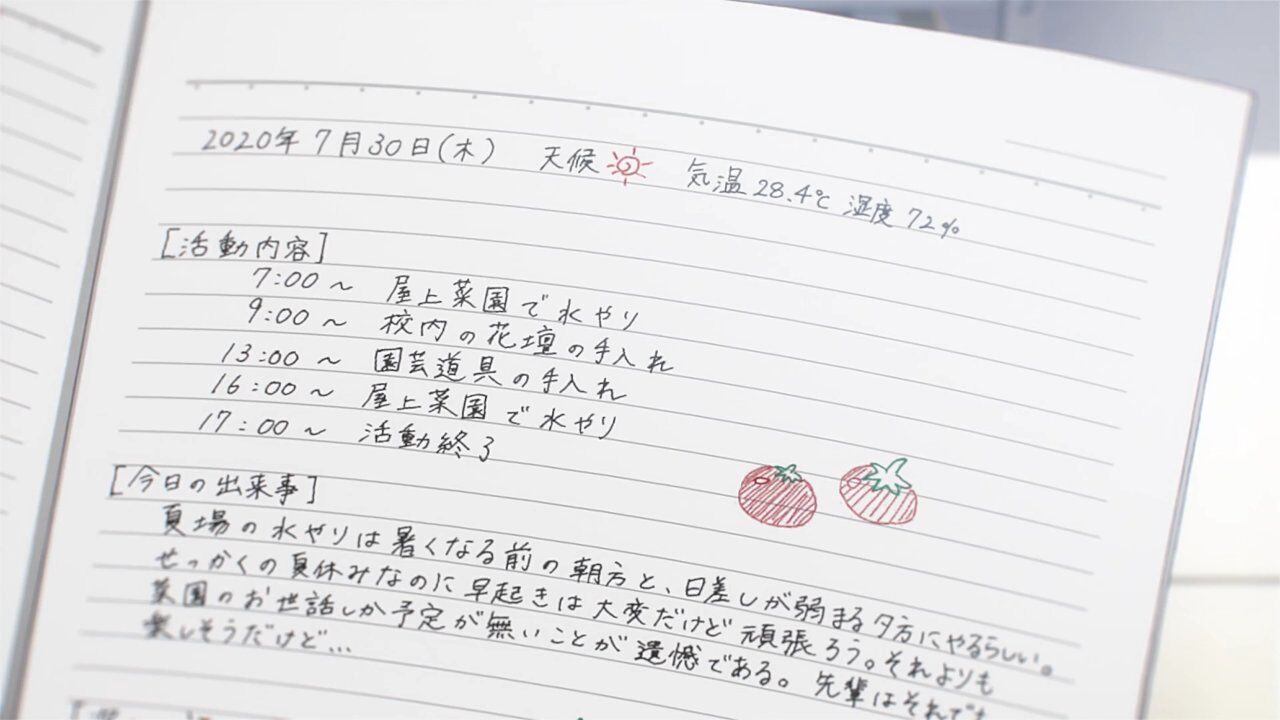 2020年 7月30日(木) 天候 気温 28.4℃ 湿度 72%
[活動内容]
7:00 ～ 屋上菜園で水やり
9:00 ～ 校内の花壇の手入れ
13:00 ～ 園芸道具の手入れ
16:00 ～ 屋上菜園で水やり
17:00 ～ 活動終了
[今日の出来事]
夏場の水やりは暑くなる前の朝方と、日差しが弱まる夕方にやるらしい。
せっかくの夏休みなのに早起きは大変だけど頑張ろう。それよりも
菜園のお世話しか予定が無いことが遺憾である。先輩はそれでも
楽しそうだけど…